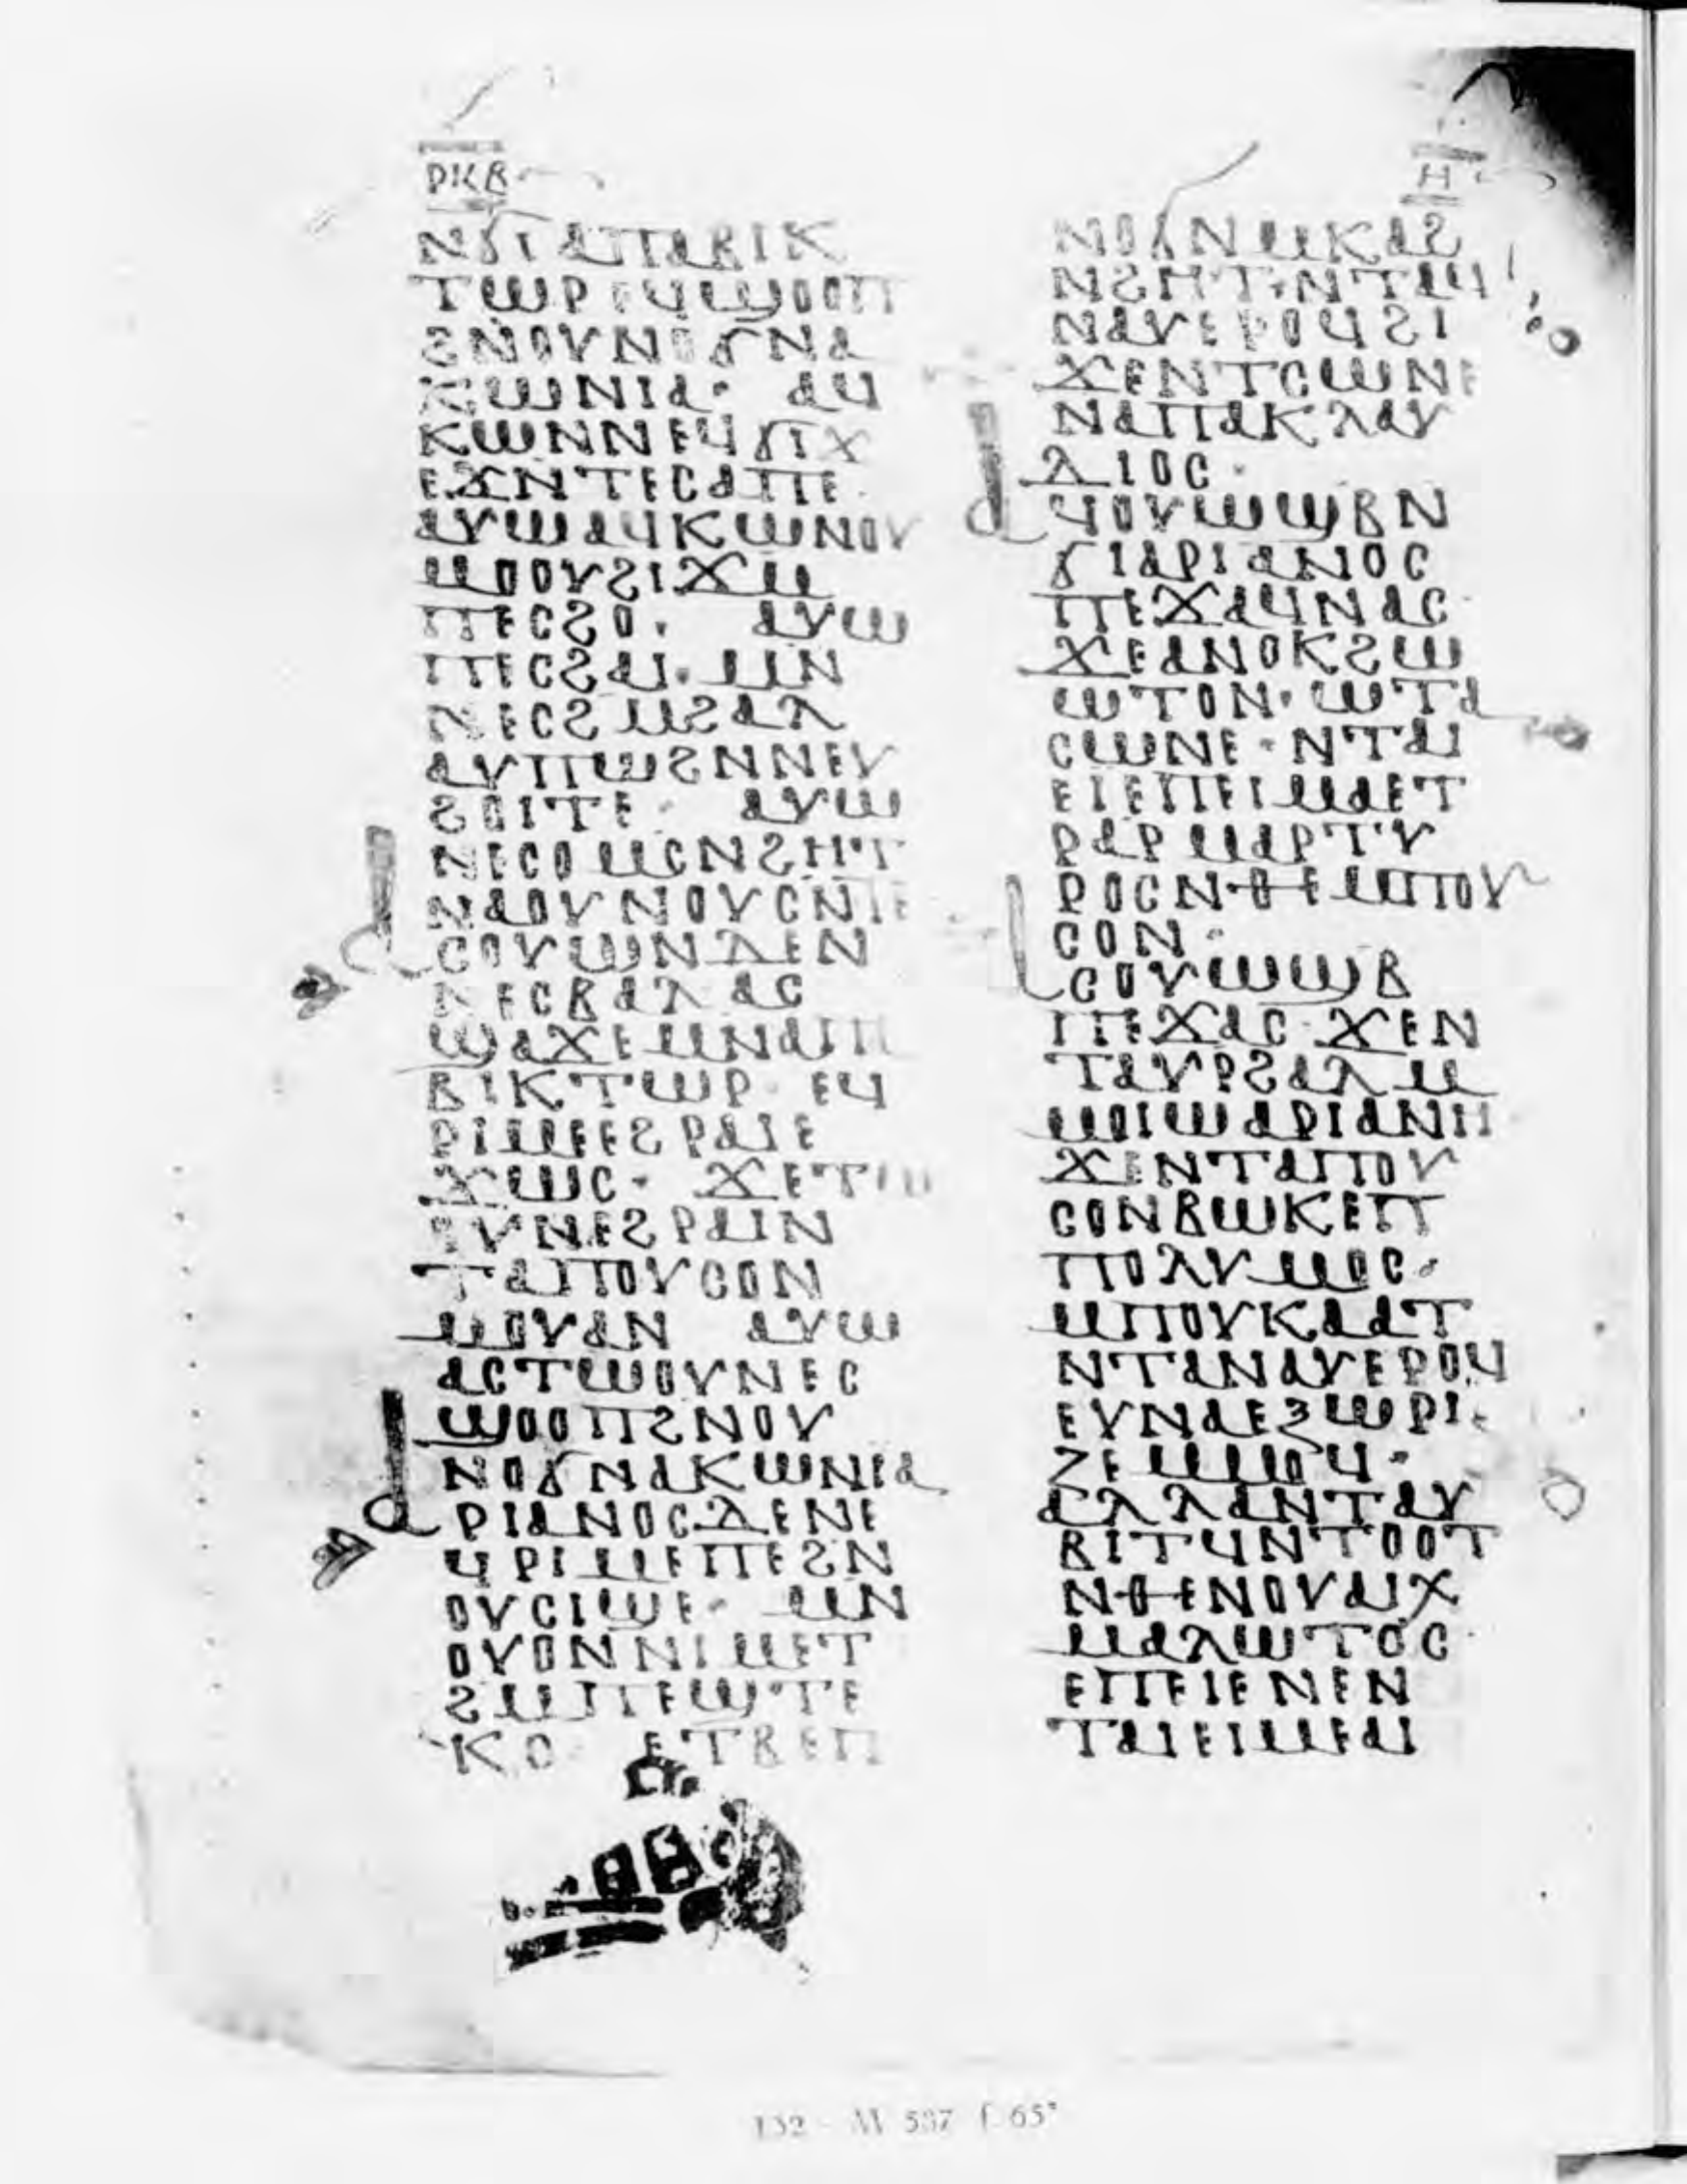 ⲢⲔⲂ
Ⲏ
ⲚϬⲒⲀⲠⲀⲂⲒⲔ
ⲦⲰⲢⲈϤϢⲞⲞⲠ
ϨⲚⲞⲨⲚⲞϬⲚⲀ
ⲄⲰⲚⲒⲀ· ⲀϤ
ⲔⲰⲚⲚⲈϤϬⲒϪ
ⲈϪⲚⲦⲈⲤⲀⲠⲈ
ⲀⲨⲰⲀϤⲔⲰⲚⲞⲨ
ⲘⲞⲞⲨϨⲒϪⲘ
ⲠⲈⲤϨⲞ· ⲀⲨⲰ
ⲠⲈⲤϨⲀⲒ· ⲘⲚ
ⲚⲈⲤϨⲘϨⲀⲗ
ⲀⲨⲠⲰϨⲚⲚⲈⲨ
ϨⲞⲒⲦⲈ· ⲀⲨⲰ
ⲚⲈⲤⲞⲘⲤⲚϨⲎⲦ
ⲚⲀⲞⲨⲚⲞⲨⲤⲚⲦⲈ
ⲀⲤⲞⲨⲰⲚⲆⲈⲚ
ⲚⲈⲤⲂⲀⲖ ⲀⲤ
ϢⲀϪⲈⲘⲚⲀⲠⲀ
ⲂⲒⲔⲦⲰⲢ· ⲈϤ
ⲢⲒⲘⲈⲈϨⲢⲀⲒⲈ
ϪⲰⲤ· ϪⲈⲦⲰ
ⲞⲨⲚⲈϨⲢⲀⲒⲚ
ⲦⲀⲠⲞⲨⲤⲞⲚ
ⲘⲞⲨⲀⲚ ⲀⲨⲰ
ⲀⲤⲦⲰⲞⲨⲚⲈⲤ
ϢⲞⲞⲠϨⲚⲞⲨ
ⲚⲞϬⲚⲀⲔⲰⲚⲒⲀ
ⲀⲢⲒⲀⲚⲞⲤⲆⲈⲚⲈ
ϤⲢⲒⲘⲈⲠⲈϨⲚ
ⲞⲨⲤⲒϢⲈ· ⲘⲚ
ⲞⲨⲞⲚⲚⲒⲘⲈⲦ
ϨⲘⲠⲈϢⲦⲈ
ⲔⲞ ⲈⲦⲂⲈⲠ
ⲚⲞϬⲚⲘⲔⲀϨ
ⲚϨⲎⲦ·ⲚⲦⲀϤ
ⲚⲀⲨⲈⲢⲞϤϨⲒ
ϪⲈⲚⲦⲤⲰⲚⲈ
ⲚⲀⲠⲀⲔⲖⲀⲨ
ⲆⲒⲞⲤ·
ⲀϤⲞⲨⲰϢⲂⲚ
ϬⲒⲀⲢⲒⲀⲚⲞⲤ
ⲠⲈϪⲀϤⲚⲀⲤ·
ϪⲈⲀⲚⲞⲔϨⲰ
ⲰⲦⲞⲚ·ⲰⲦⲀ
ⲤⲰⲚⲈ·ⲚⲦⲀⲒ
ⲈⲒⲈⲠⲈⲒⲘⲀⲈⲦ
ⲢⲀⲢⲘⲀⲢⲦⲨ
ⲢⲞⲤⲚⲐⲈⲘⲠⲞⲨ
ⲤⲞⲚ·
ⲀⲤⲞⲨⲰϢⲂ
ⲠⲈϪⲀⲤ·ϪⲈⲚ
ⲦⲀⲨⲢϨⲀⲖⲘ
ⲘⲞⲒⲰⲀⲢⲒⲀⲚⲎ
ϪⲒⲚⲦⲀⲠⲞⲨ
ⲤⲞⲚⲂⲰⲔⲈⲠ
ⲠⲞⲖⲨⲘⲞⲤ·
ⲘⲠⲞⲨⲔⲀⲀⲦ
ⲚⲦⲀⲚⲀⲨⲈⲢⲞϤ
ⲈⲨⲚⲀⲈⲜⲰⲢⲒ
ⲌⲈⲘⲘⲞϤ·
ⲀⲖⲖⲀⲚⲦⲀⲨ
ⲂⲒⲦϤⲚⲦⲞⲞⲦ
ⲚⲐⲈⲚⲞⲨⲀⲒⲬ
ⲘⲀⲖⲰⲦⲞⲤ·
ⲈⲠⲈⲒⲈⲚⲈⲚ
ⲦⲀⲒⲈⲒⲘⲈⲀⲒ
132 - M 587 f. 65ᵛ